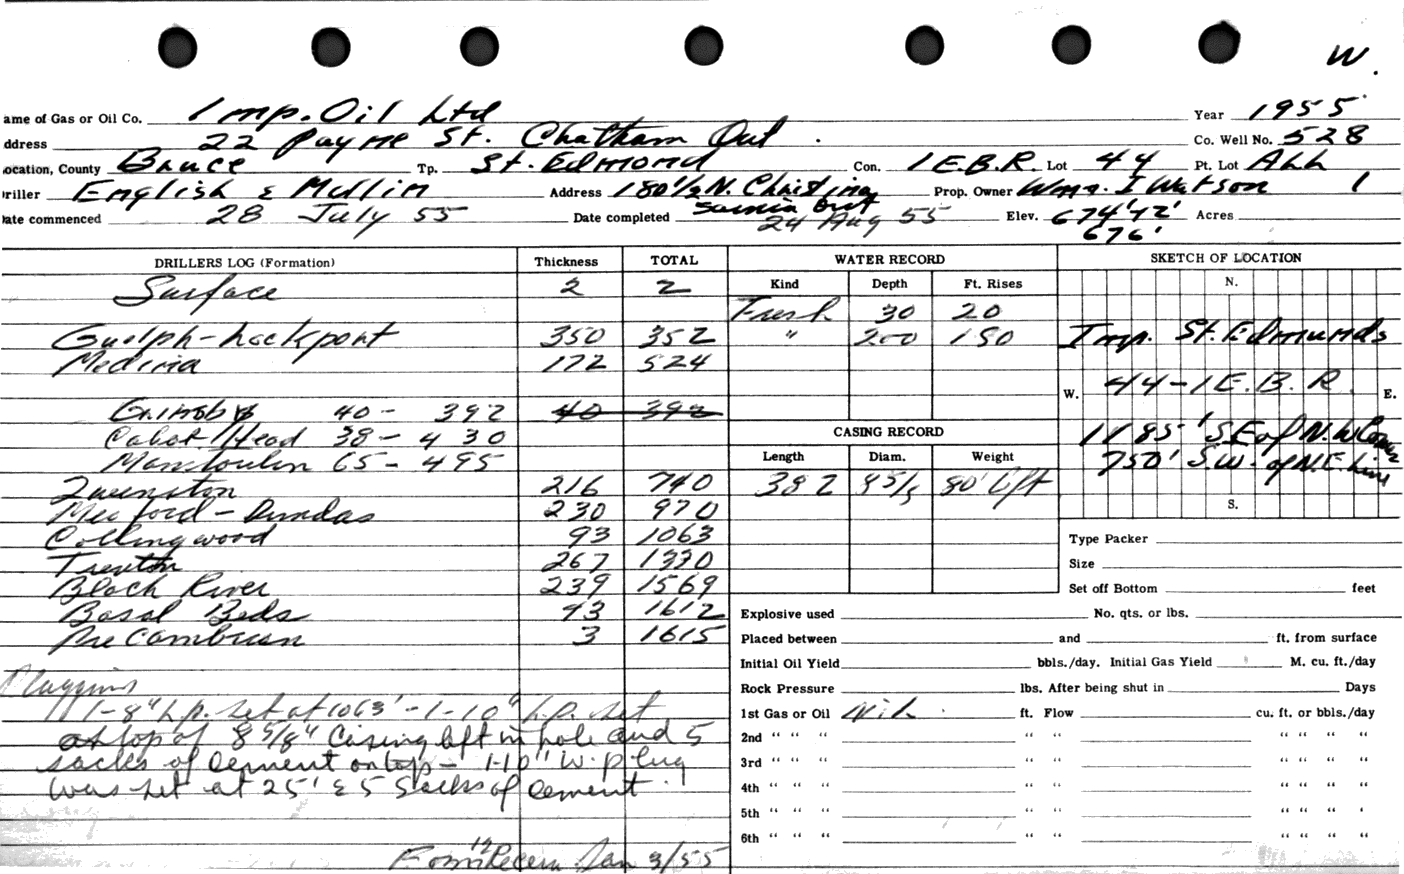 W.
ame of Gas or Oil Co. Imp. Oil Ltd Year 1955
ddress 22 Payne St. Chatham Ont. Co. Well No. 528
ocation, County Bruce Tp. St. Edmond Con. 1 E.B.R. Lot 44 Pt. Lot All
riller English & Mullin Address 180½ N. Christina Prop. Owner Wm. I Watson 1
Sarnia Ont
ate commenced 28 July 55 Date completed 24 Aug 55 Elev. 674'72' Acres
676'
DRILLERS LOG (Formation) Thickness TOTAL WATER RECORD SKETCH OF LOCATION
Surface 2 2 Kind Depth Ft. Rises N.
Fresh 30 20
Guelph-Lockport 350 352 " 200 150 Imp. St. Edmunds
Medina 172 524
W. 44-1 E.B.R. E.
Grimsby 40 - 392 40 392
Cabot Head 38 - 430 CASING RECORD 1185' S.E of N.W Corner
Manitoulin 65 - 495 Length Diam. Weight 750' S.W. of N.E. Line
Queenston 216 740 382 8 5/8 80' Left
Meaford - Dundas 230 970 S.
Collingwood 93 1063 Type Packer
Trenton 267 1330 Size
Black River 239 1569 Set off Bottom feet
Basal Beds 43 1612 Explosive used No. qts. or lbs.
Pre Cambrian 3 1615 Placed between and ft. from surface
Initial Oil Yield bbls./day. Initial Gas Yield M. cu. ft./day
Plugging Rock Pressure lbs. After being shut in Days
1-8" L.p. set at 1063' - 1-10" L.p. set 1st Gas or Oil Nil. ft. Flow cu. ft. or bbls./day
at top of 8 5/8" Casing left in hole and 5 2nd " " " " " " " " "
sacks of cement on top - 1-10" W. plug 3rd " " " " " " " " "
was set at 25' & 5 Sacks of cement. 4th " " " " " " " " "
5th " " " " " " " " "
6th " " " " " " " " "
Form 12 Recem Jan 3/55